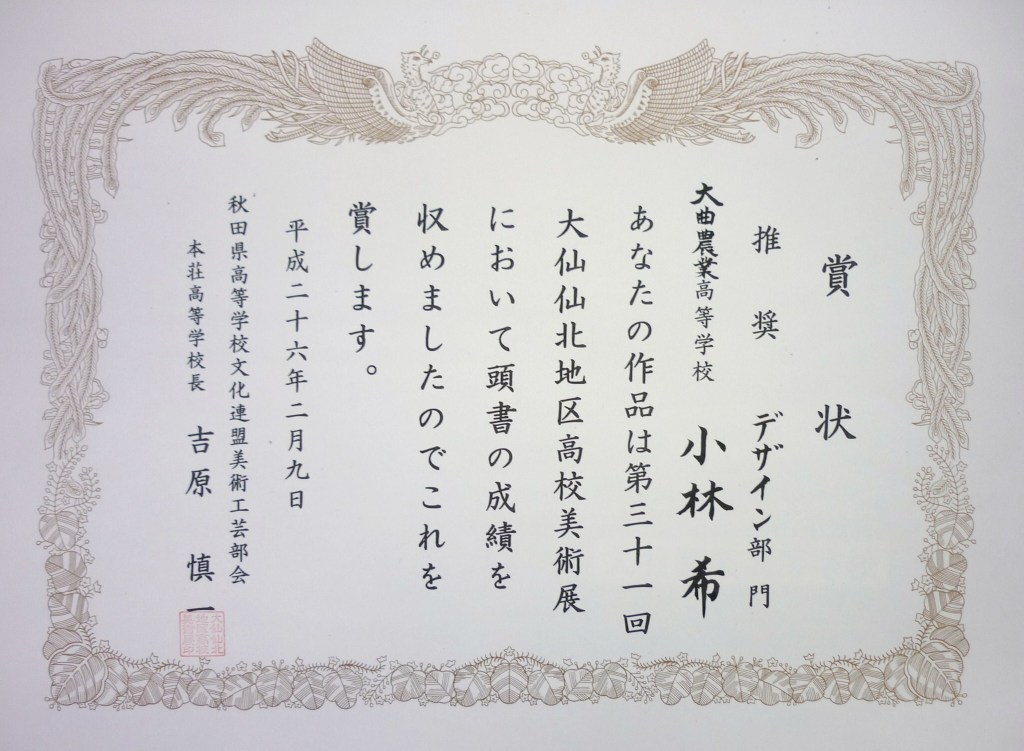 賞状
推奨 デザイン部門
大曲農業高等学校 小林希
あなたの作品は第三十一回
大仙仙北地区高校美術展
において頭書の成績を
収めましたのでこれを
賞します。
平成二十六年二月九日
秋田県高等学校文化連盟美術工芸部会
本荘高等学校長 吉原 慎一